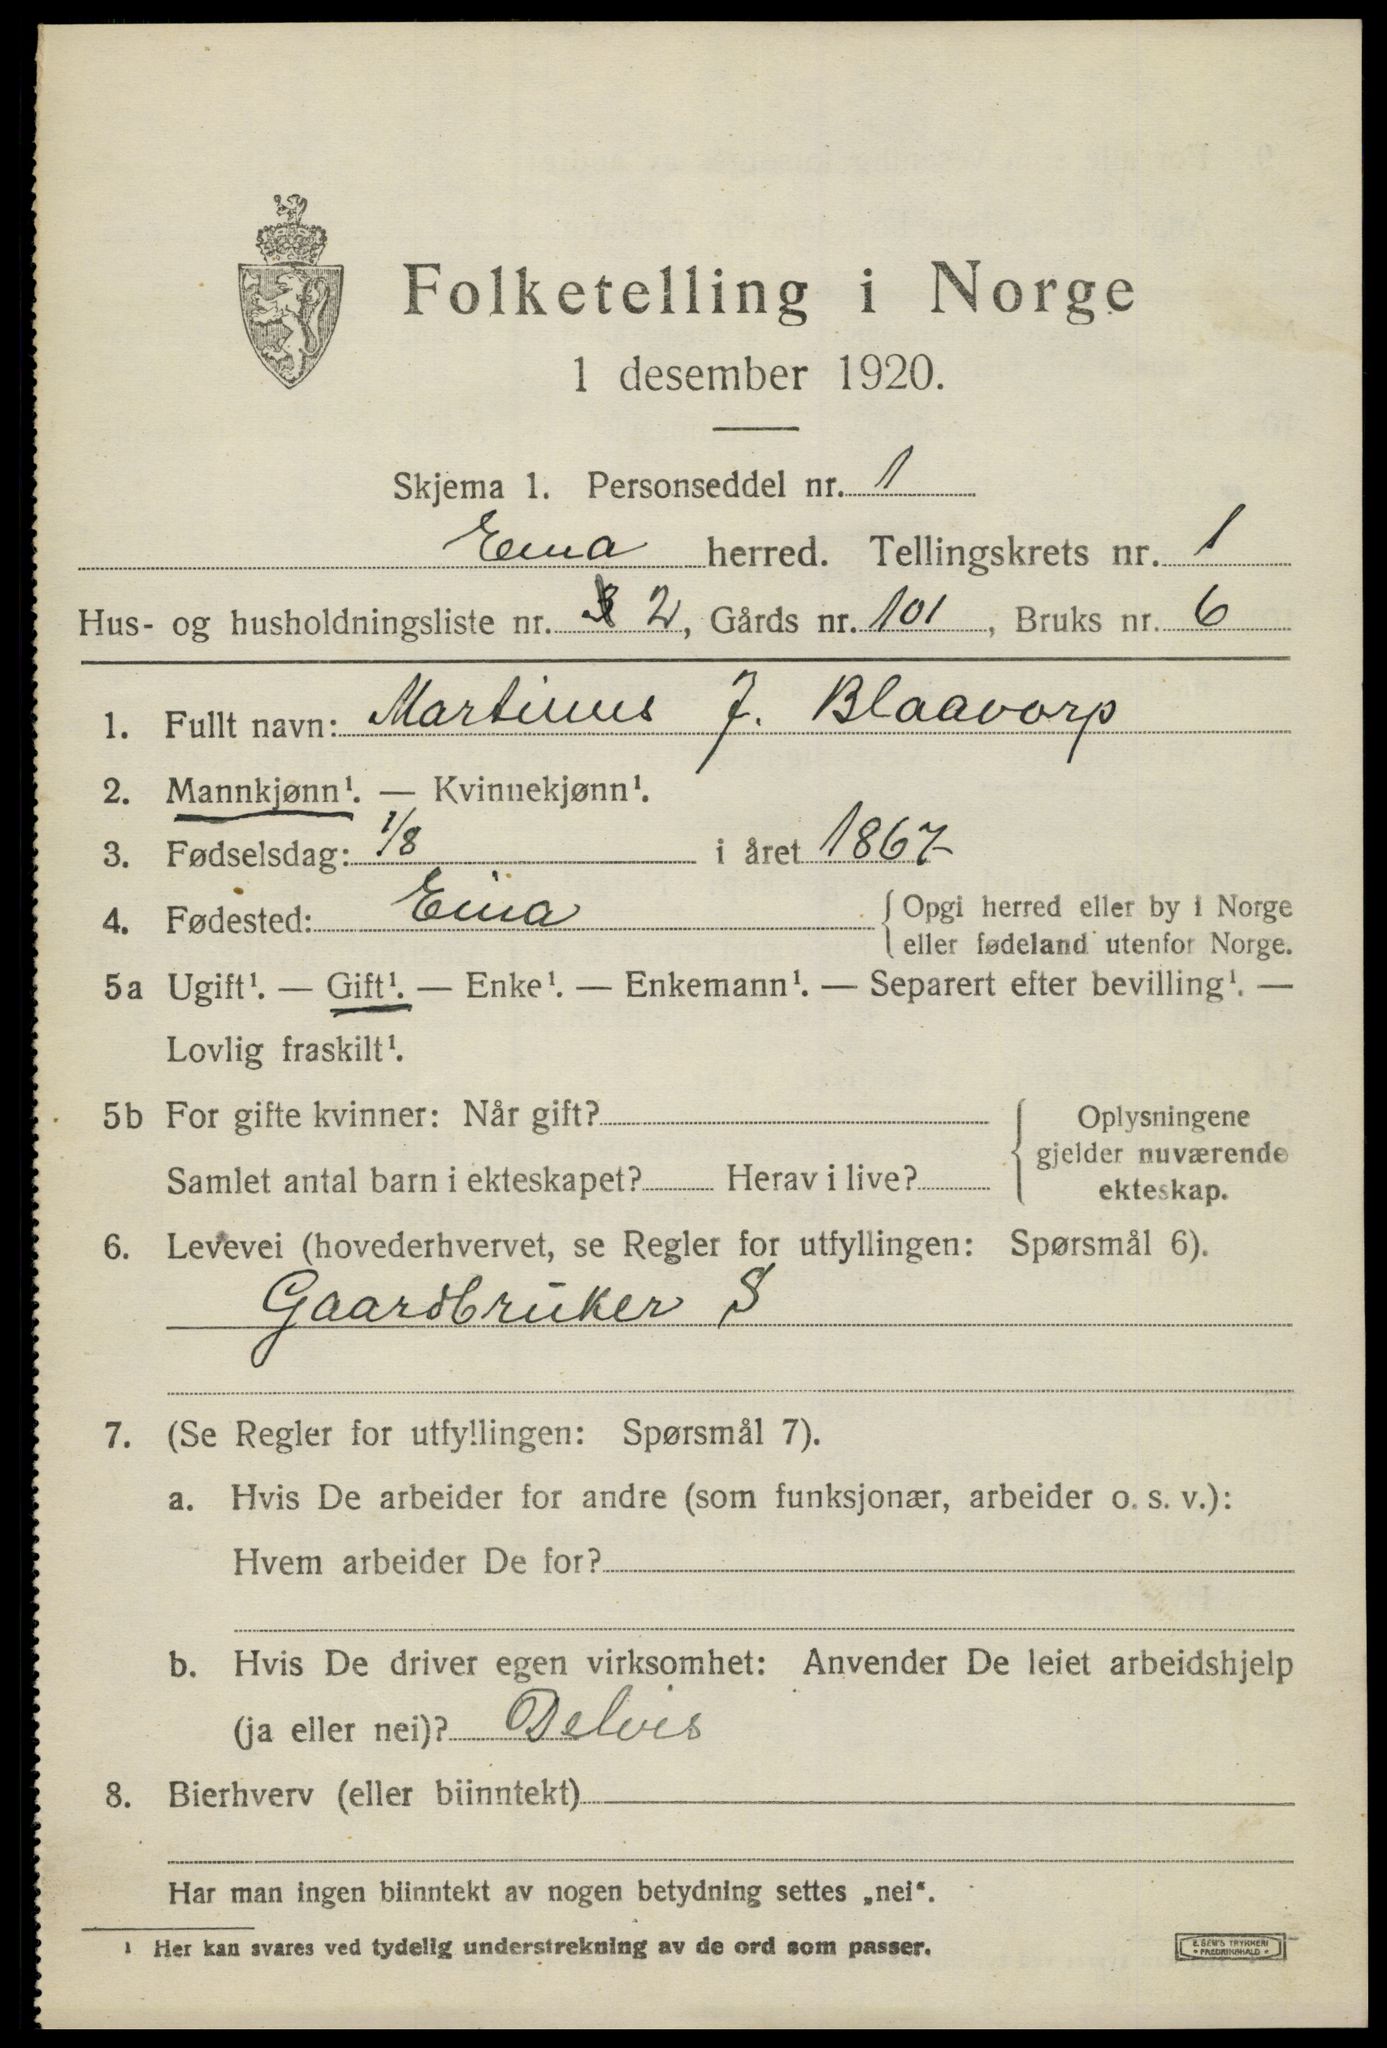 Folketelling i Norge
1 desember 1920.
Skjema 1. Personseddel nr. 1
Eina herred. Tellingskrets nr. 1
Hus- og husholdningsliste nr. 2, Gårds nr. 101, Bruks nr. 6
1. Fullt navn: Martinus J. Blaavorp
2. Mannkjønn¹. — Kvinnekjønn¹.
3. Fødselsdag: 1/8 i året 1867
4. Fødested: Eina { Opgi herred eller by i Norge
eller fødeland utenfor Norge.
5a Ugift¹. — Gift¹. — Enke¹. — Enkemann¹. — Separert efter bevilling¹. —
Lovlig fraskilt¹.
5b For gifte kvinner: Når gift? { Oplysningene
gjelder nuværende
Samlet antal barn i ekteskapet? Herav i live? ekteskap.
6. Levevei (hovederhvervet, se Regler for utfyllingen: Spørsmål 6).
Gaardbruker S
7. (Se Regler for utfyllingen: Spørsmål 7).
a. Hvis De arbeider for andre (som funksjonær, arbeider o. s. v.):
Hvem arbeider De for?
b. Hvis De driver egen virksomhet: Anvender De leiet arbeidshjelp
(ja eller nei)? Delvis
8. Bierhverv (eller biinntekt)
Har man ingen biinntekt av nogen betydning settes „nei“.
¹ Her kan svares ved tydelig understrekning av de ord som passer.
E. SEM'S TRYKKERI
• FREDRIKSHALD •